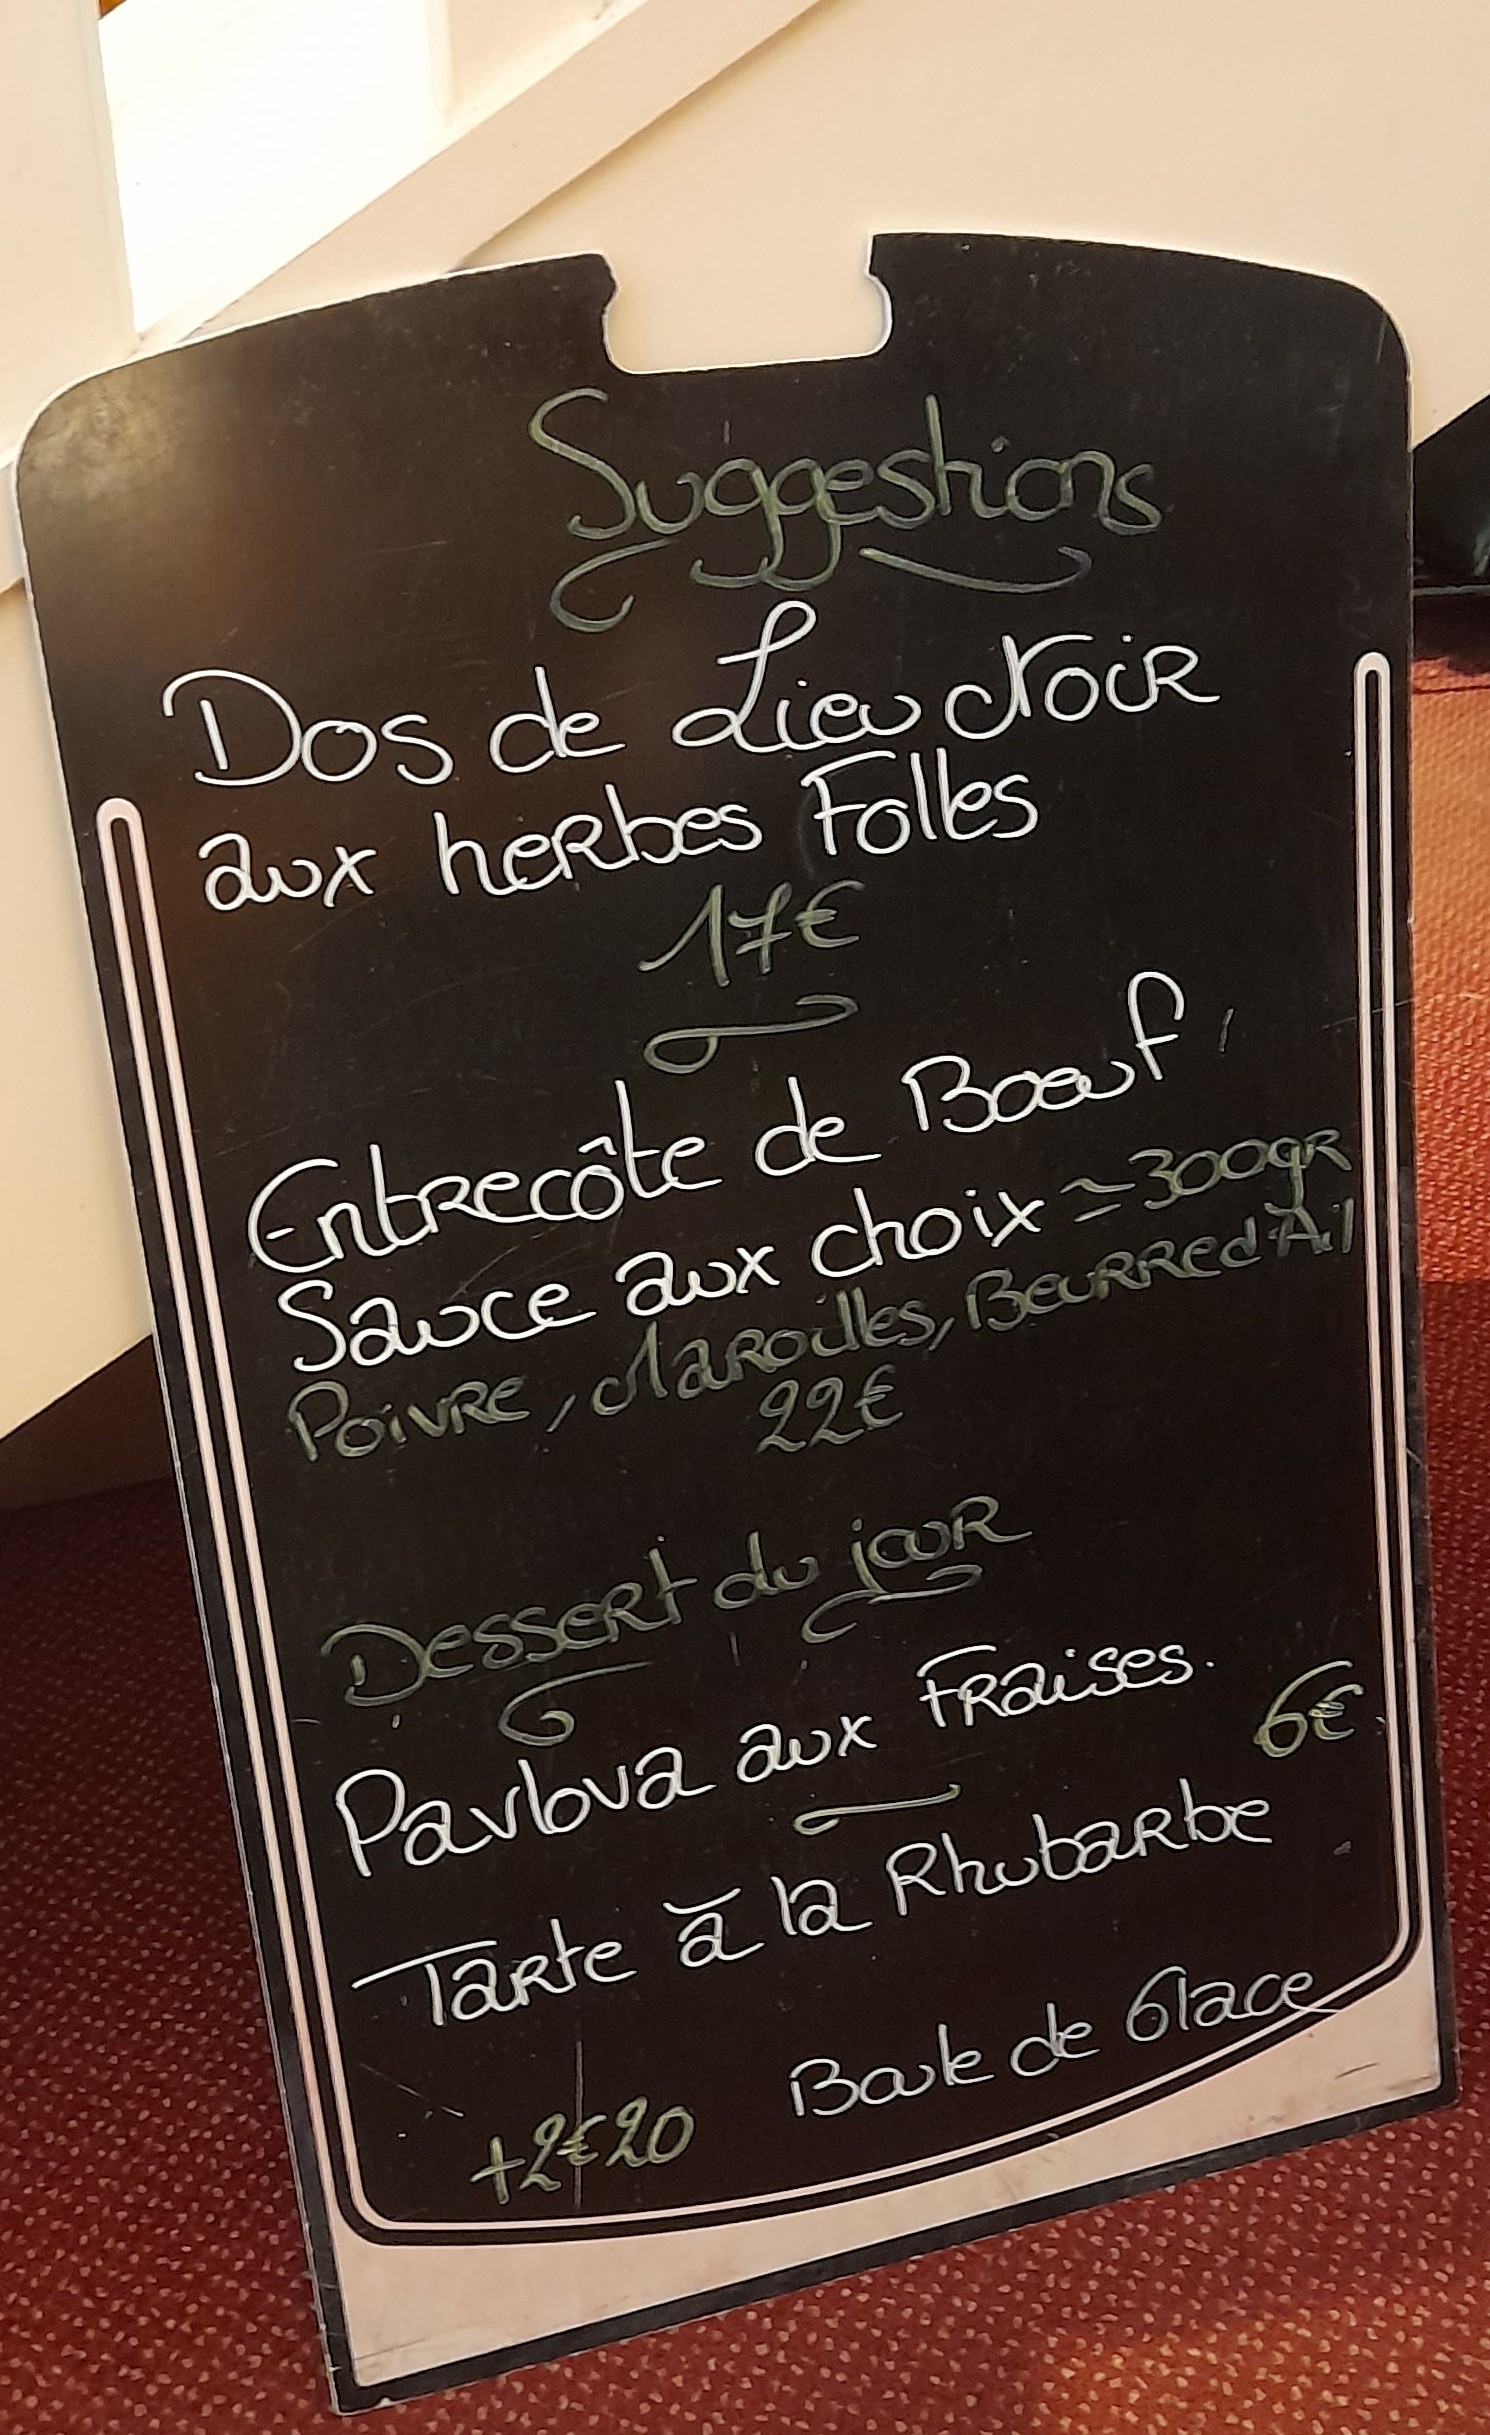 Suggestions
Dos de Lieu Noir
aux herbes Folles
17€
Entrecôte de Boeuf,
Sauce aux choix ≃ 300gr
Poivre, Maroilles, Beurre d'Ail
22€
Dessert du jour
Pavlova aux Fraises.
6€
Tarte à la Rhubarbe
Boule de Glace
+2€20